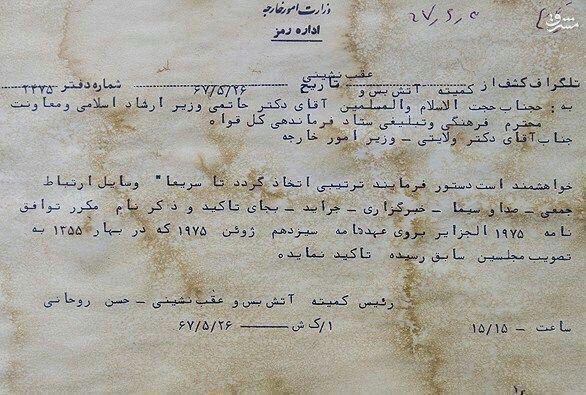 وزارت امور خارجه
اداره رمز
۲۷/۵/۶۷
مشرق
عقب نشینی
تلگراف کشف از کمیته آتش بس و تاریخ ۶۷/۵/۲۶ شماره دفتر ۲۴۷۵
به : جناب حجت الاسلام والمسلمین آقای دکتر حاتمی وزیر ارشاد اسلامی ومعاونت
محترم فرهنگی وتبلیغی ستاد فرماندهی کل قوا ه
جناب آقای دکتر ولایتی – وزیر امور خارجه
خواهشمند است دستور فرمایند ترتیبی اتخاذ گردد تا سریعا" وسایل ارتباط
جمعی – صدا و سیما – خبرگزاری – جراید – بجای تاکید و ذکر نام مکرر توافق
نامه ۱۹۷۵ الجزایر بروی عهدنامه سیزدهم ژوئن ۱۹۷۵ که در بهار ۱۳۵۵ به
تصویب مجلسین سابق رسیده تاکید نمایده
رئیس کمیته آتش بس و عقب نشینی – حسن روحانی
ساعت – ۱۵/۱۵ ۱/ک ش ——— ۶۷/۵/۲۶